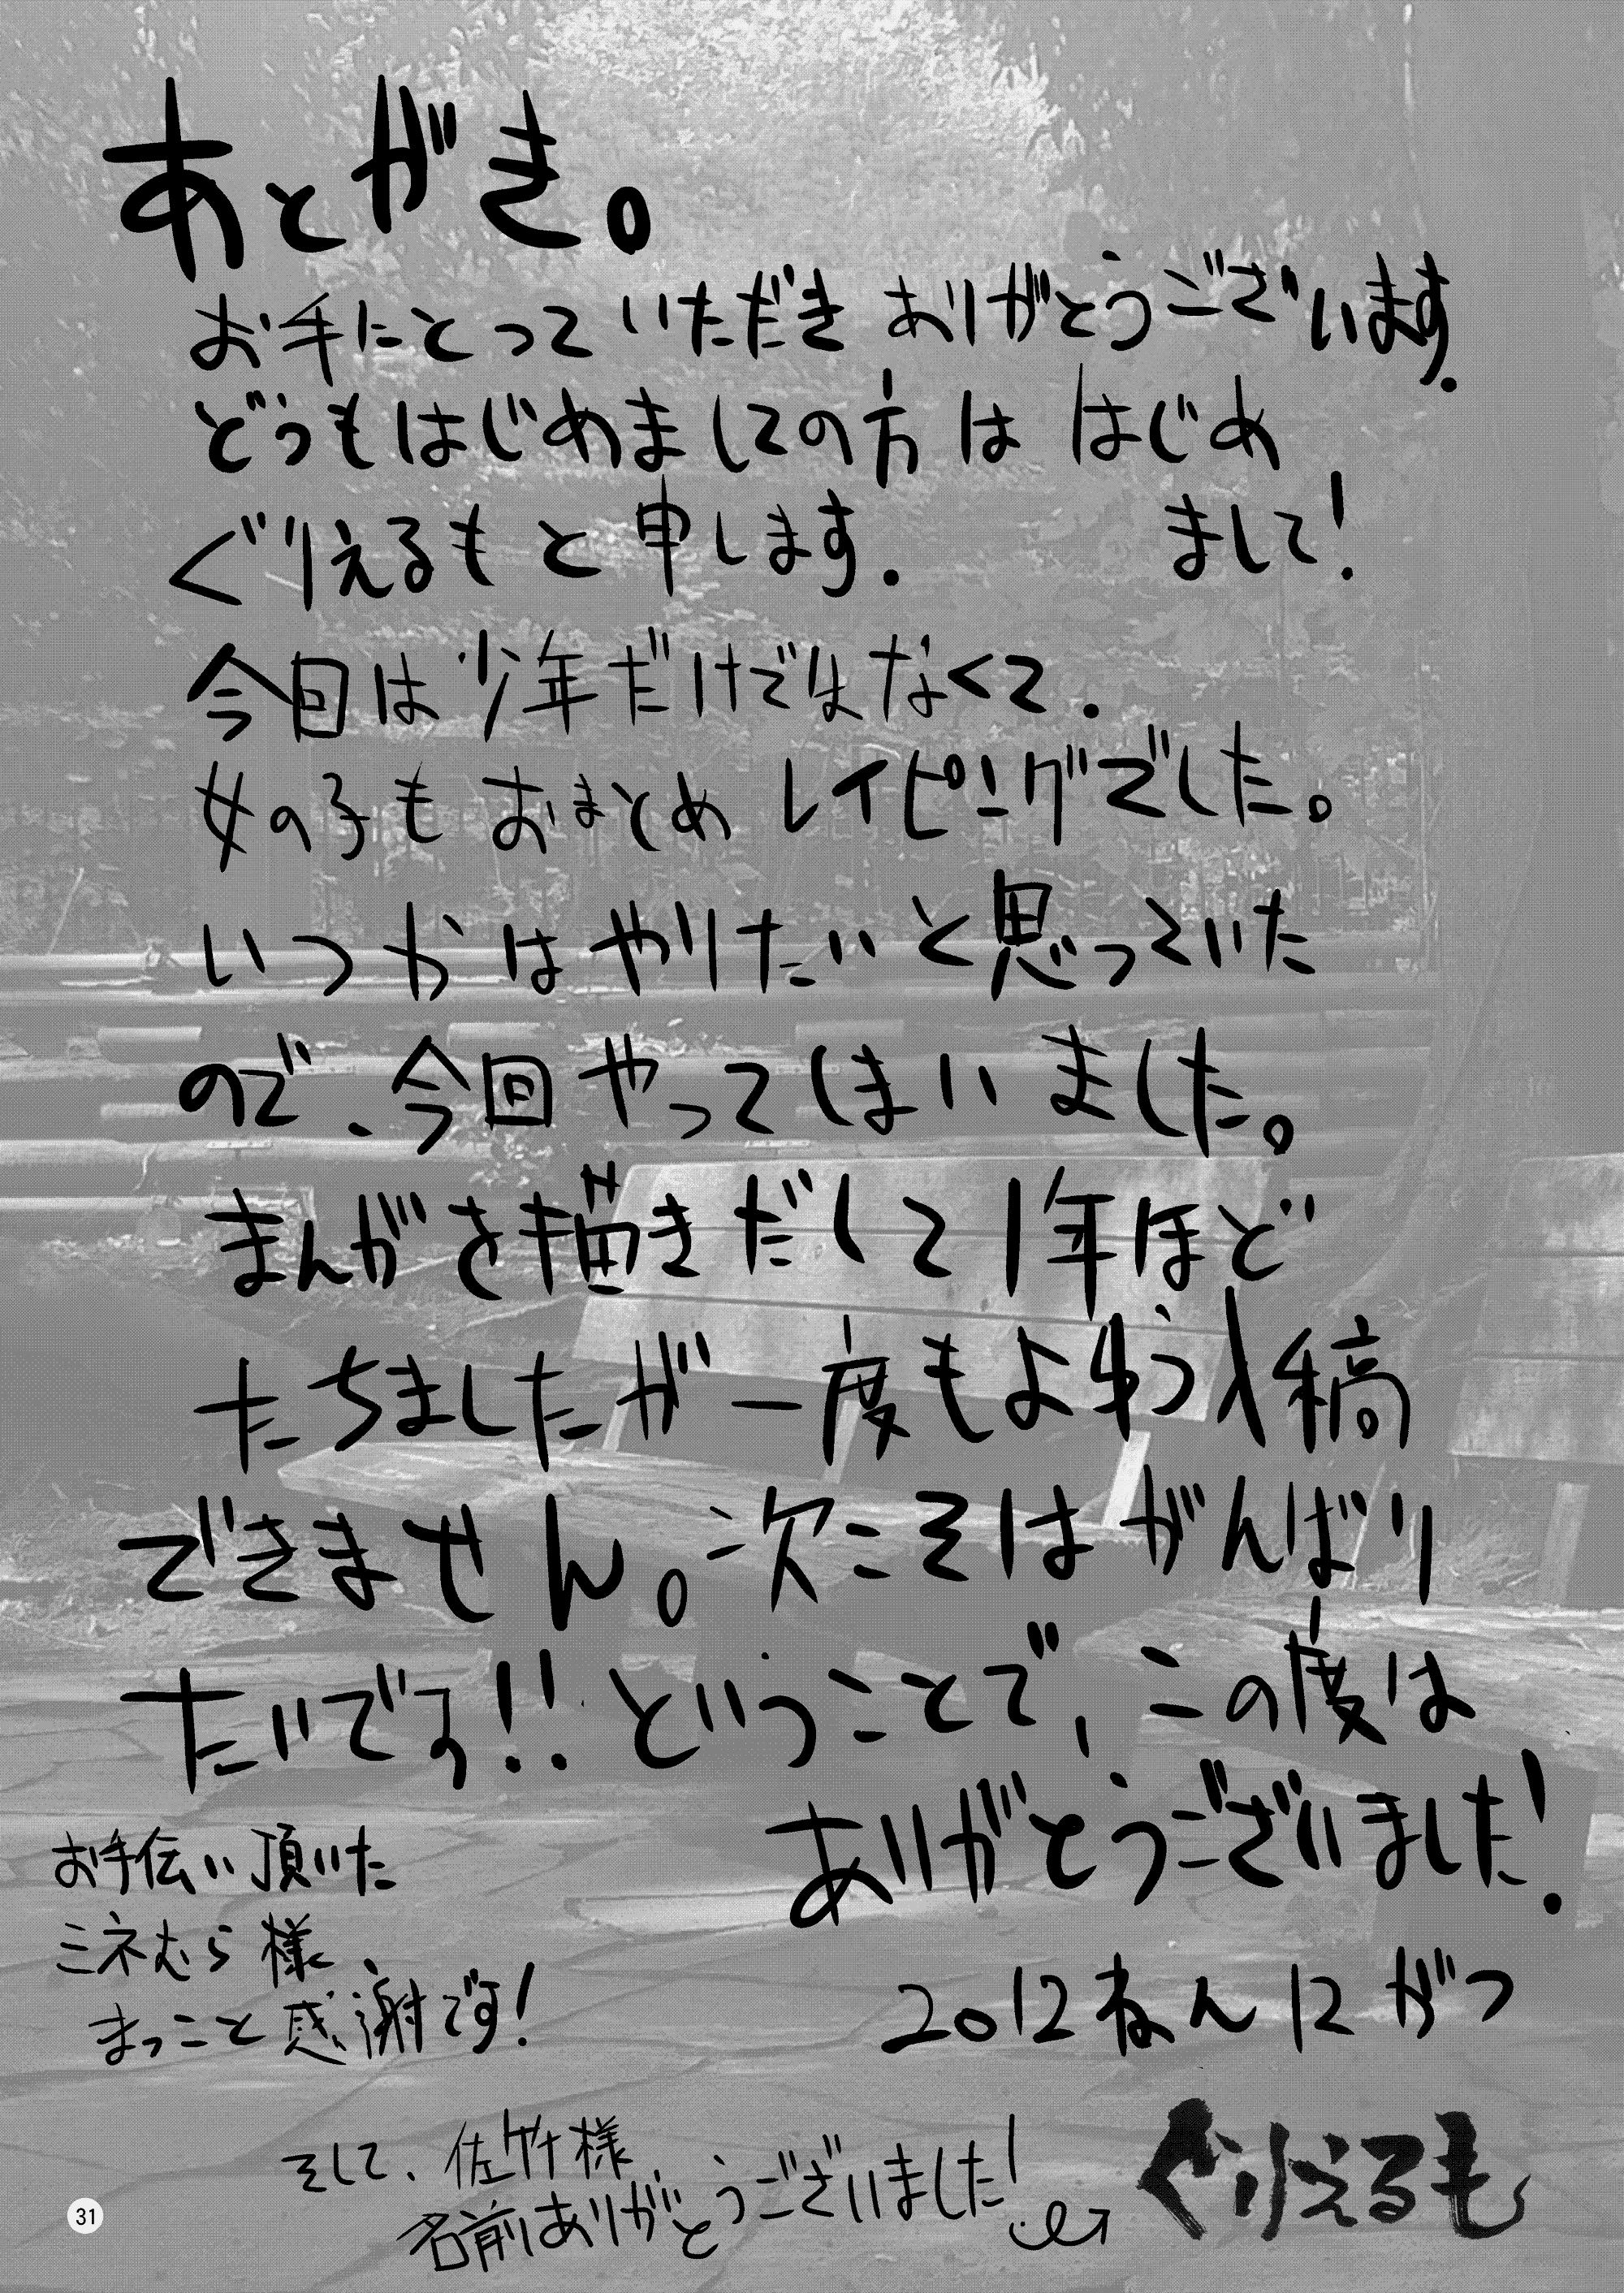 あとがき。
お手にとっていただき ありがとうございます.
どうもはじめましての方は はじめ
まして!
ぐりえるもと申します.
今回は少年だけではなくて.
女の子も おまとめ レイピングでした。
いつかはやりたいと思っていた
ので、今回やってしまいました。
まんがを描きだして1年ほど
たちましたが一度もよゆう入稿
できません。次こそはがんばり
たいです!! ということで、この度は
ありがとうございました!
2012ねん12がつ
ぐりえるも
お手伝い頂いた
ミネむら様、
まっこと感謝です!
そして、佐竹様
名前ありがとうございました!
31